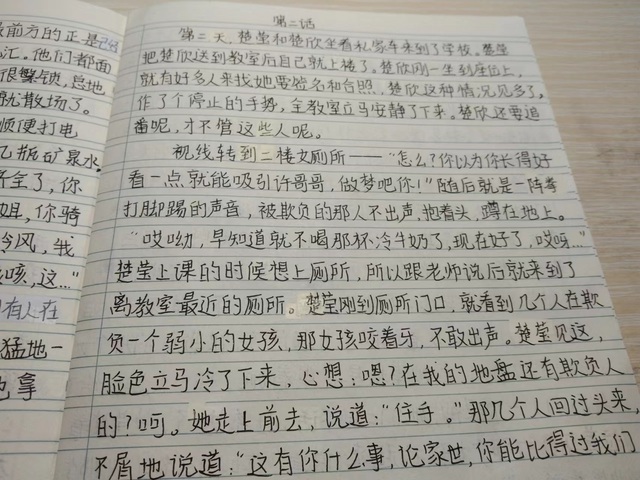 最前方的正是258
汇。他们都面
很繁锁，总地
就散场了。
顺便打电
乙瓶矿泉水
齐全了，你
姐，你骑
冷风，我
咳，这…"
有人在
猛地一
拿
第二话
第二天，楚莹和楚欣坐着私家车来到了学校。楚莹
把楚欣送到教室后自己就上楼了。楚欣刚一坐到座位上，
就有好多人来找她要签名和合照，楚欣这种情况见多了，
作了个停止的手势，全教室立马安静了下来。楚欣还要追
番呢，才不管这些人呢。
视线转到二楼女厕所——"怎么？你以为你长得好
看一点就能吸引许哥哥，做梦吧你！"随后就是一阵拳
打脚踢的声音，被欺负的那人不出声，抱着头，蹲在地上。
"哎呦，早知道就不喝那杯冷牛奶了，现在好了，哎呀…"
楚莹上课的时候想上厕所，所以跟老师说后就来到了
离教室最近的厕所。楚莹刚到厕所门口，就看到几个人在欺
负一个弱小的女孩，那女孩咬着牙，不敢出声。楚莹见这，
脸色立马冷了下来，心想：嗯？在我的地盘还有欺负人
的？呵。她走上前去，说道："住手。"那几个人回过头来，
不屑地说道："这有你什么事，论家世，你能比得过我们